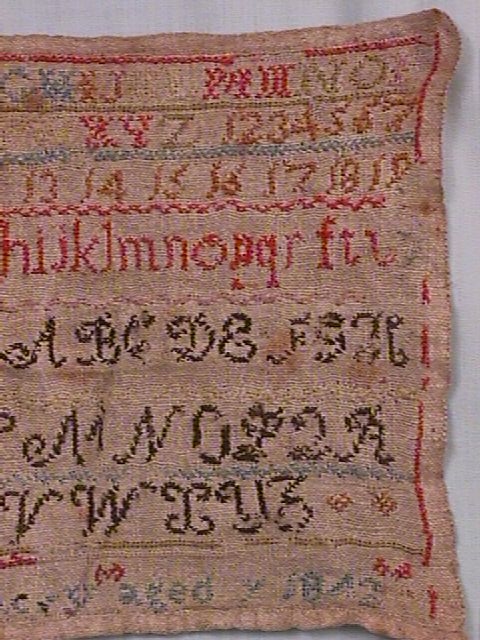 G H I J K L M N O
X Y Z 1 2 3 4 5 6 7
13 14 15 16 17 18 19
hijklmnopqr ſtu
A B C D E F G H
M N O P Q R
V W X Y Z
aged 1842